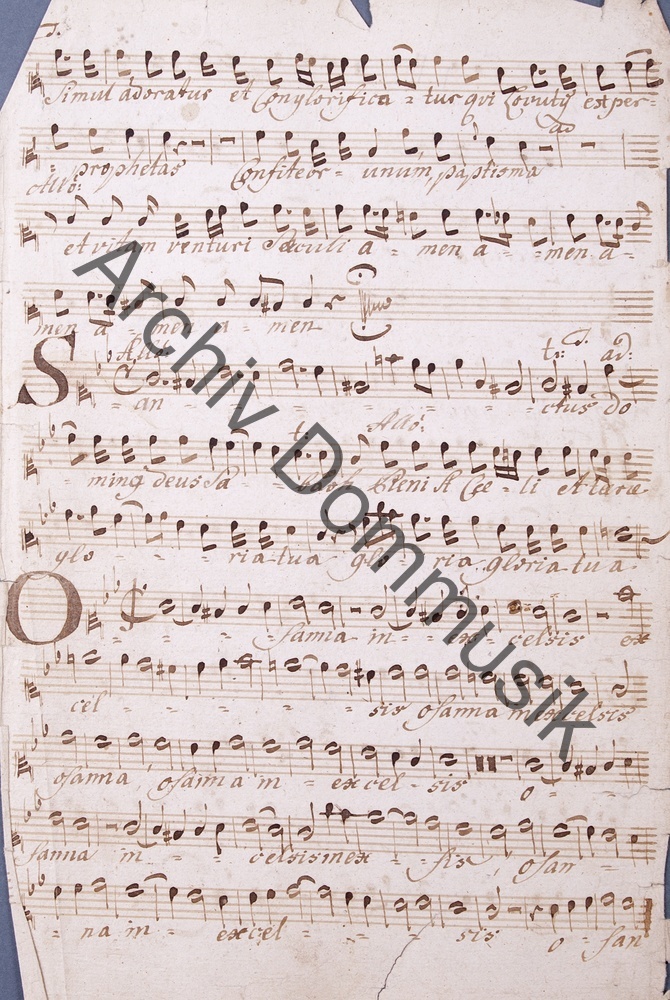 T.
Simul adoratus et Conglorifica - tur qui Locuty est per-
ad
- prophetas Confiteor - unum paptisma
Allo:
et vitam venturi Saeculi a - men a - men a -
men a - men a - men
Allo t: T. ad:
San - - - - - - - ctus do
t: Allo:
- ming deus Sa - baoth Pleni st Cae - li et terra
glo - - - ria tua glo - ria gloria tua
O - - - sanna in - - ex - celsis ex
cel - - - - - - sis osanna in excelsis
osanna, osanna in - excel - sis o -
sanna in - - - celsis in ex - - sis, osan -
- na in - excel - - - sis o - san
Archiv Dommusik